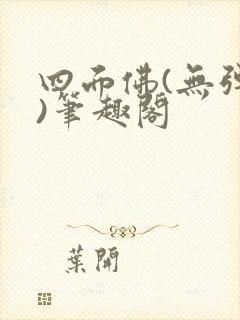 四面佛(無彈
)筆趣閣
葉開